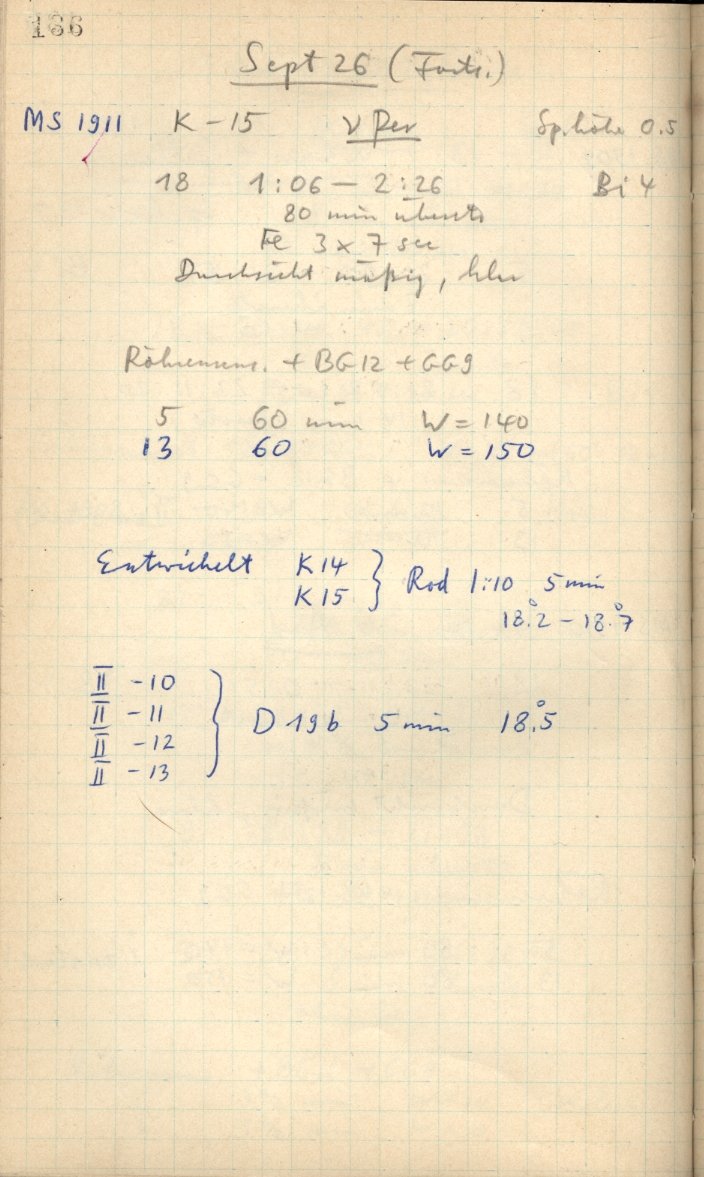 166
Sept 26 (Forts.)
MS 1911 K-15 ν Per Sp.höhe 0.5
18 1:06 – 2:26 Bi 4
80 min
Fe 3 x 7 sec
Durchsicht mäßig,
+ BG12 + GG9
5 60 min W = 140
13 60 W = 150
Entwickelt K14
K15 } Rod 1:10 5 min
18.°2 – 18.°7
II -10
II -11
II -12
II -13
} D 19b 5 min 18.°5